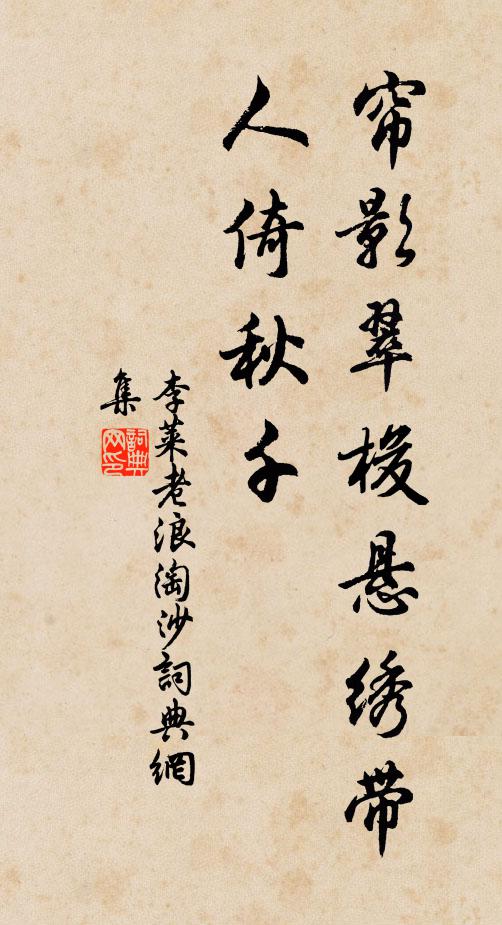 帘影翠梭悬绣带
人倚秋千
李莱老浪淘沙詞典網
集
詞典網印